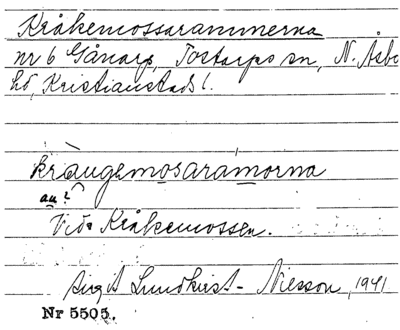 Kråkemossarammerna
nr 6 Gånarp, Tostarps sn, N. Åsbo
hd, Kristianstads l.
kraugemosaramorna
au?
Vid Kråkemossen.
Birgit Lundkvist-Nilsson, 1941
Nr 5505.